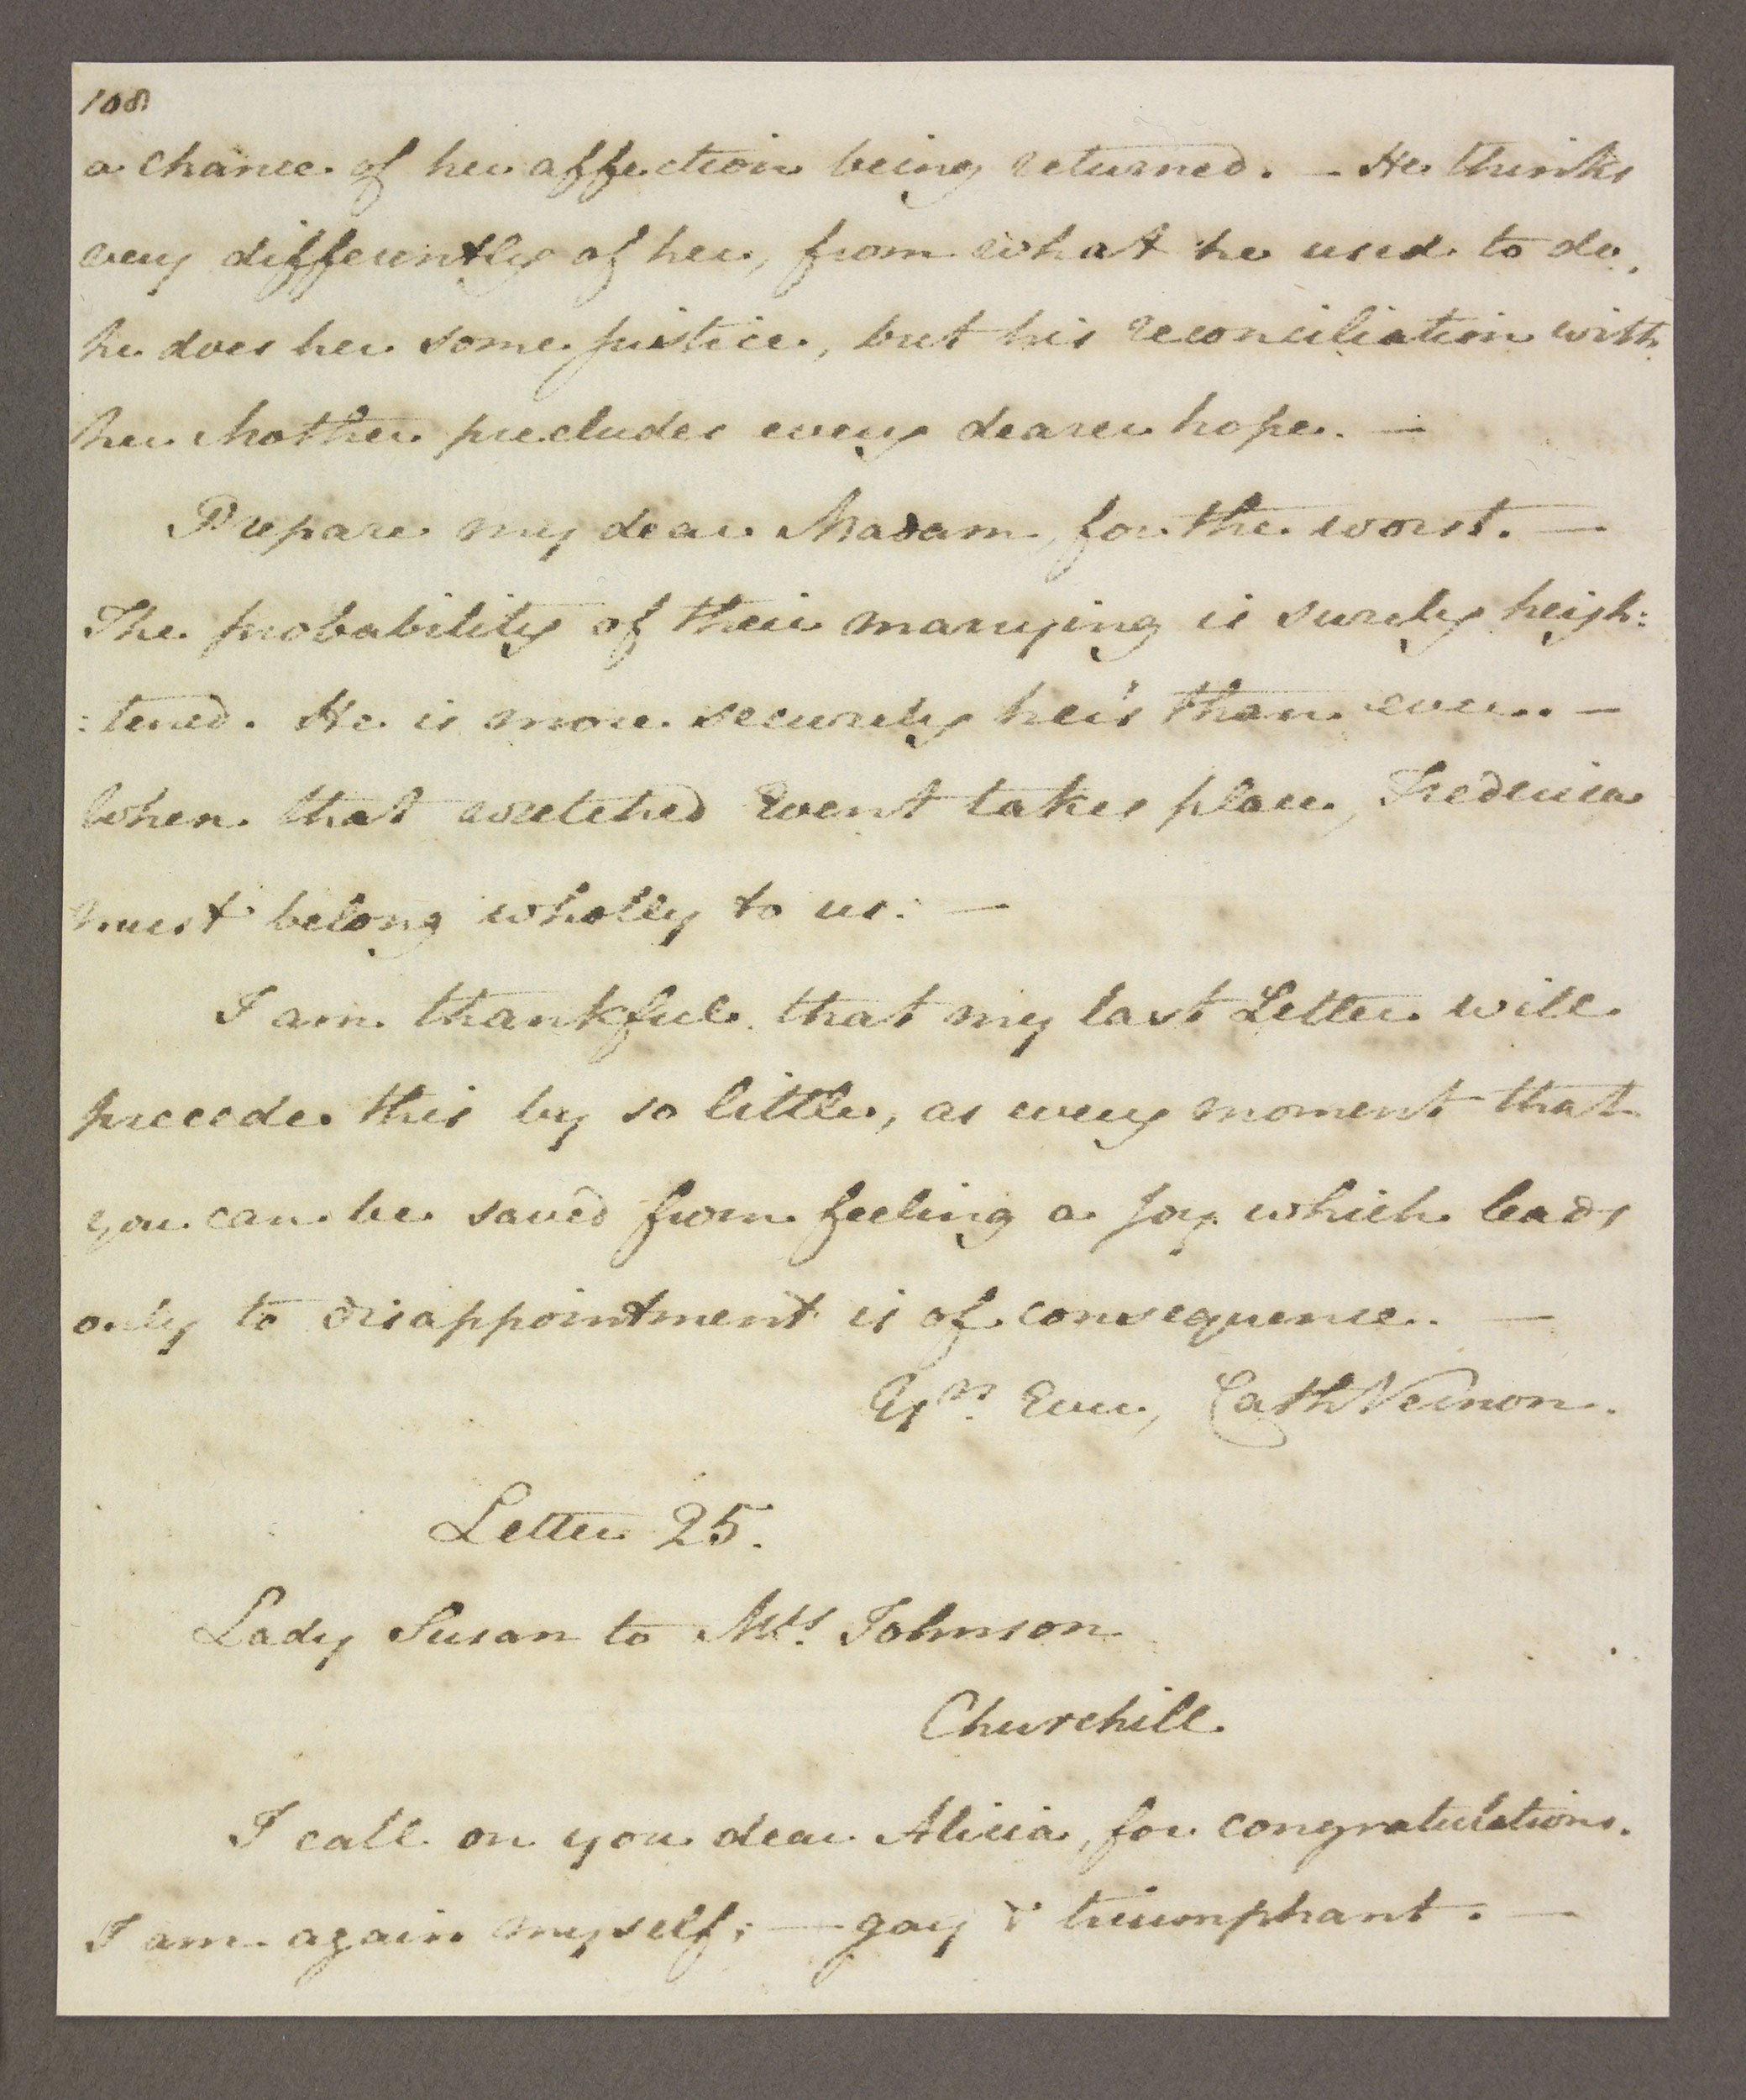 108
a chance of her affection being returned. — He thinks
very differently of her, from what he used to do,
he does her some justice, but his reconciliation with
her Mother precludes every dearer hope. —
Prepare my dear Madam, for the worst. —
The probability of their marrying is surely heigh:
:tened. He is more securely her's than ever. —
When that wretched Event takes place, Frederica
must belong wholly to us. —
I am thankful that my last Letter will
precede this by so little, as every moment that
you can be saved from feeling a Joy which leads
only to disappointment is of consequence. —
Yrs. Ever, Cath Vernon.
Letter 25.
Lady Susan to Mrs. Johnson
Churchill.
I call on you dear Alicia, for congratulations.
I am again myself; — gay & triumphant. —